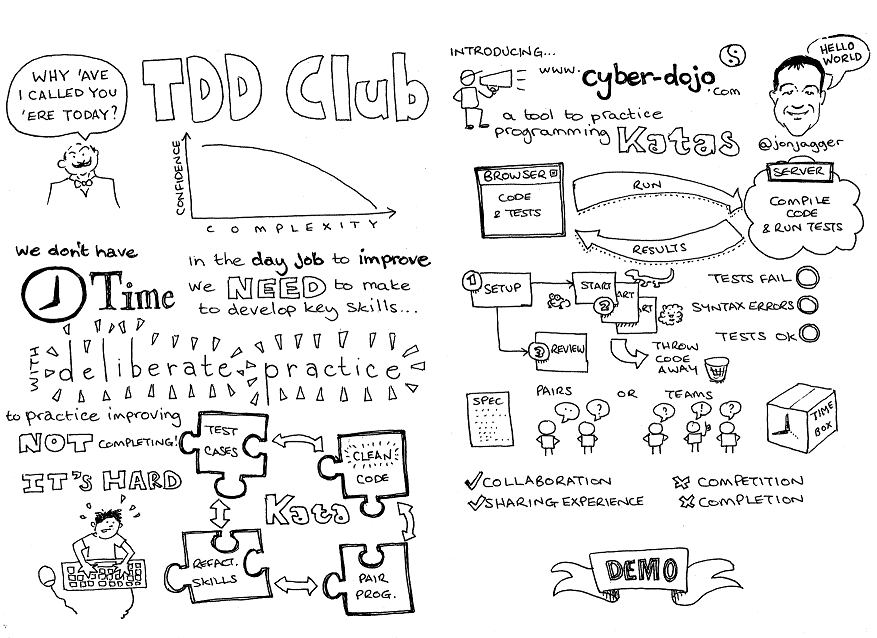 WHY 'AVE
I CALLED YOU
'ERE TODAY?
TDD Club
CONFIDENCE
COMPLEXITY
We don't have
Time
in the day job to improve
we NEED to make
to develop key skills...
WITH
deliberate practice
to practice improving
NOT COMPLETING!
IT'S HARD
TEST
CASES
CLEAN
CODE
Kata
REFACT.
SKILLS
PAIR
PROG.
INTRODUCING...
www.cyber-dojo.com
a tool to practice
programming Katas
HELLO
WORLD
@jonjagger
BROWSER
CODE
& TESTS
RUN
RESULTS
SERVER
COMPILE
CODE
& RUN TESTS
1 SETUP
START
2 ART
RT
3 REVIEW
THROW
CODE
AWAY
TESTS FAIL
SYNTAX ERRORS
TESTS OK
SPEC
PAIRS OR TEAMS
...
?
?
!
?
TIME
BOX
COLLABORATION
SHARING EXPERIENCE
COMPETITION
COMPLETION
DEMO